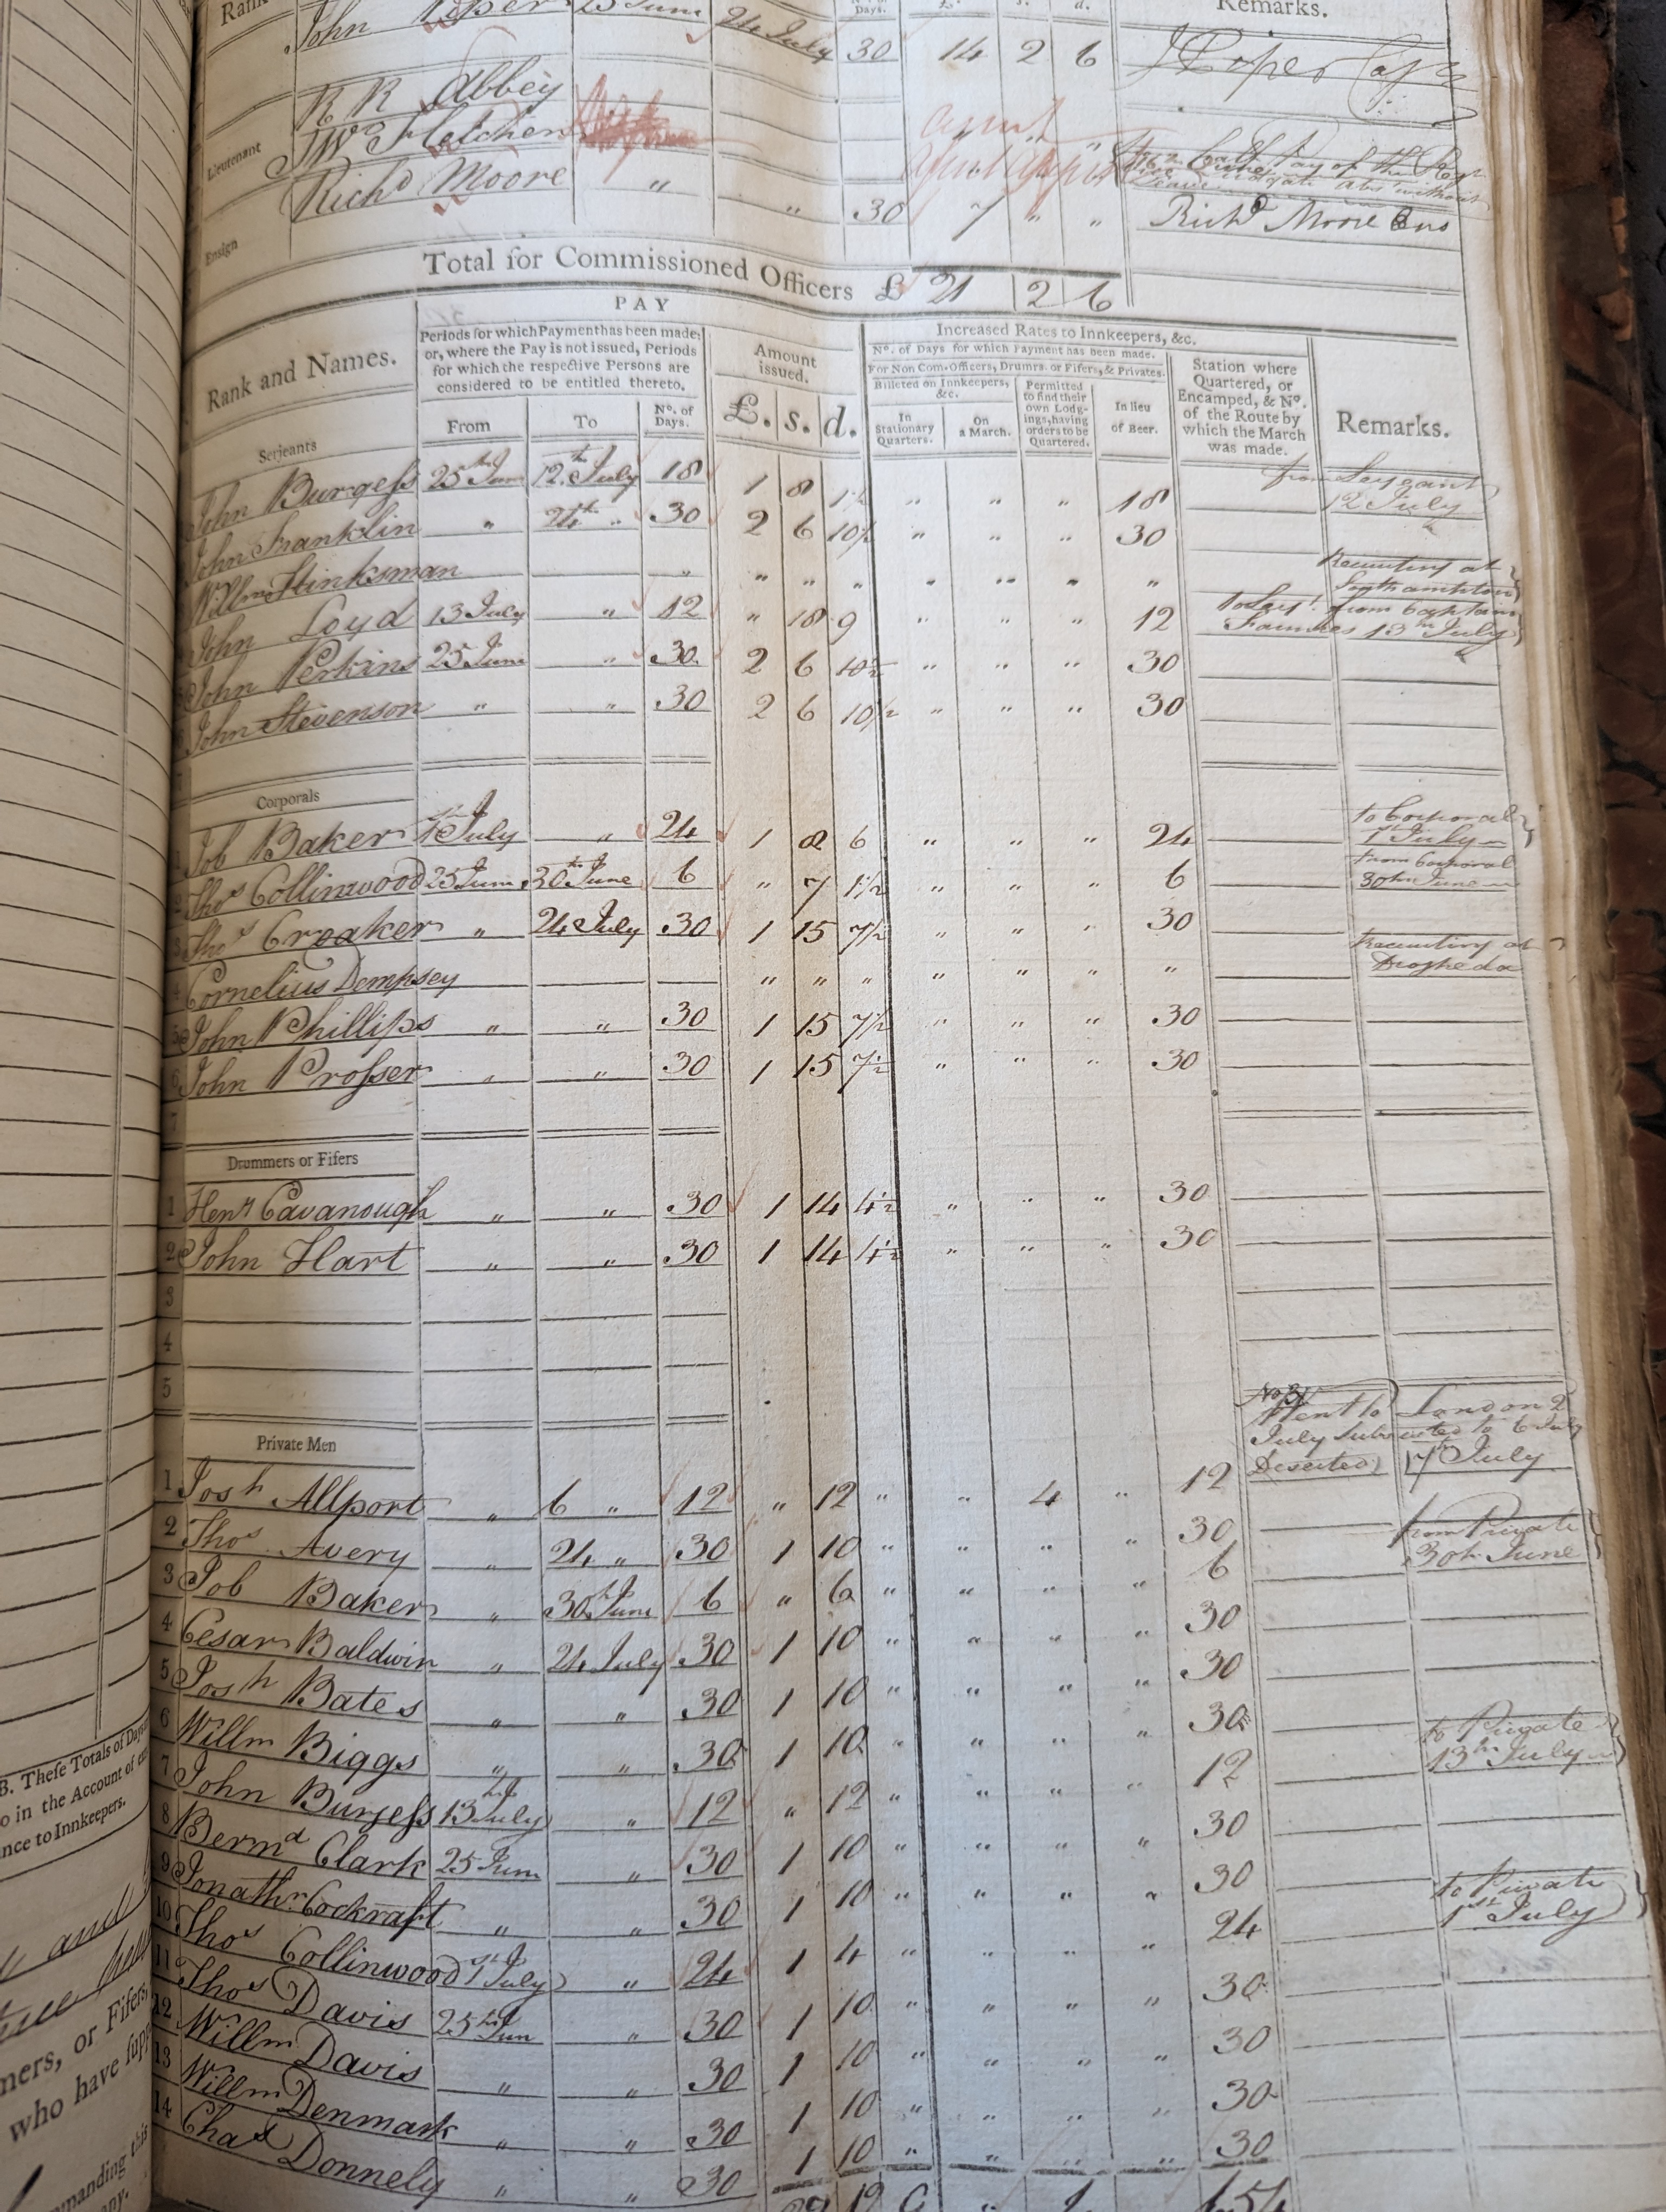 Remarks.
Days.
John 25 June 24 July 30 14 2 6
R R Abbey
Lieutenant
Wm Fletcher
Agent
Ensign
Richd Moore " " 30 7 " " Richd Moore Ens
Total for Commissioned Officers £ 21 2 6
PAY
Increased Rates to Innkeepers, &c.
Rank and Names.
Periods for which Payment has been made; or, where the Pay is not issued, Periods for which the respective Persons are considered to be entitled thereto.
Amount issued.
No. of Days for which Payment has been made.
For Non Com. Officers, Drumrs. or Fifers, & Privates.
Billeted on Innkeepers, &c.
Permitted to find their own Lodgings, having orders to be Quartered.
In lieu of Beer.
Station where Quartered, or Encamped, & No. of the Route by which the March was made.
Remarks.
From To No. of Days. £. s. d. In Stationary Quarters. On a March.
Serjeants
John Burgess 25th June 12th July 18 1 8 1½ " " " 18 from Serjeant 12 July
John Franklin " 24th " 30 2 6 10½ " " " 30
Willm Hinksman " " " " " " " " Recruiting at Southampton
John Loyd 13 July " 12 " 18 9 " " " 12 to Serjt. from 13th July
John Perkins 25 June " 30 2 6 10½ " " " 30
John Stevenson " " 30 2 6 10½ " " " 30
Corporals
1 Job Baker 1st July " 24 1 8 6 " " " 24 to Corporal 1st July
2 Thos Collinwood 25 June 30th June 6 " 7 1½ " " " 6 from Corporal 30th June
3 Thos Croaker " 24 July 30 1 15 7½ " " " 30
4 Cornelius Dempsey " " " " " " " Recruiting at Drogheda
5 John Phillips " " 30 1 15 7½ " " " 30
6 John Prosser " " 30 1 15 7½ " " " 30
7
Drummers or Fifers
1 Heny Cavanough " " 30 1 14 4½ " " " 30
2 John Hart " " 30 1 14 4½ " " " 30
3
4
5
Private Men
No 31 Went to London 2
July to 6 July
Deserted 7th July
1 Josh Allport " 6 " 12 " 12 " " 4 " 12
2 Thos Avery " 24 " 30 1 10 " " " " 30
3 Job Baker " 30th June 6 " 6 " " " " 6 from Private 30th June
4 Cesar Baldwin " 24 July 30 1 10 " " " " 30
5 Josh Bates " " 30 1 10 " " " " 30
6 Willm Biggs " " 30 1 10 " " " " 30
7 John Burgess 13th July " 12 " 12 " " " " 12 to Private 13th July
8 Bernd Clark 25 June " 30 1 10 " " " " 30
9 Jonathn Cockraft " " 30 1 10 " " " " 30
10 Thos Collinwood 1st July " 24 1 4 " " " " 24 to Private 1st July
11 Thos Davis 25th Jun " 30 1 10 " " " " 30
12 Willm Davis " " 30 1 10 " " " " 30
13 Willm Denmark " " 30 1 10 " " " " 30
14 Chas Donnely " " 30 1 10 " " " " 30
B. These Totals of Days
o in the Account of
nce to Innkeepers.
and
mers, or Fifers,
who have
manding this
any.